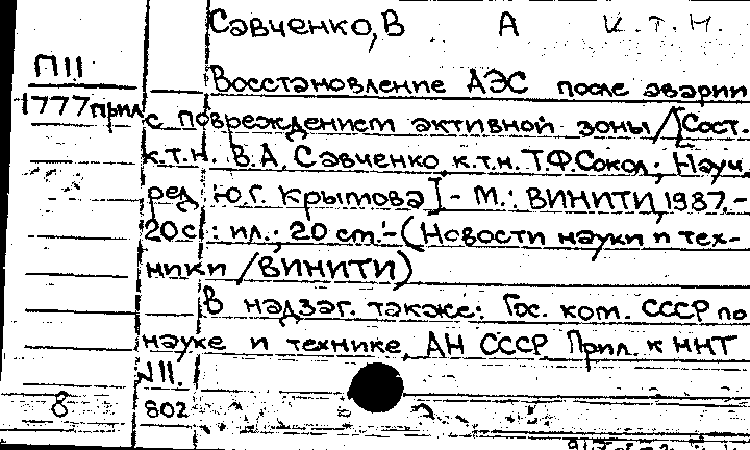 Савченко, В А к.т.н.
П11
Восстановление АЭС после аварии
1777прил
с повреждением активной зоны / [Сост.
к.т.н. В.А. Савченко, к.т.н. Т.Ф.Сокол; Науч.
ред. Ю.Г. Крымова] - М.: ВИНИТИ, 1987.-
20 с.: ил.; 20 см.-(Новости науки и тех-
ники / ВИНИТИ)
В надзаг. также: Гос. ком. СССР по
науке и технике, АН СССР Прил. к ННТ
N11.
8 802